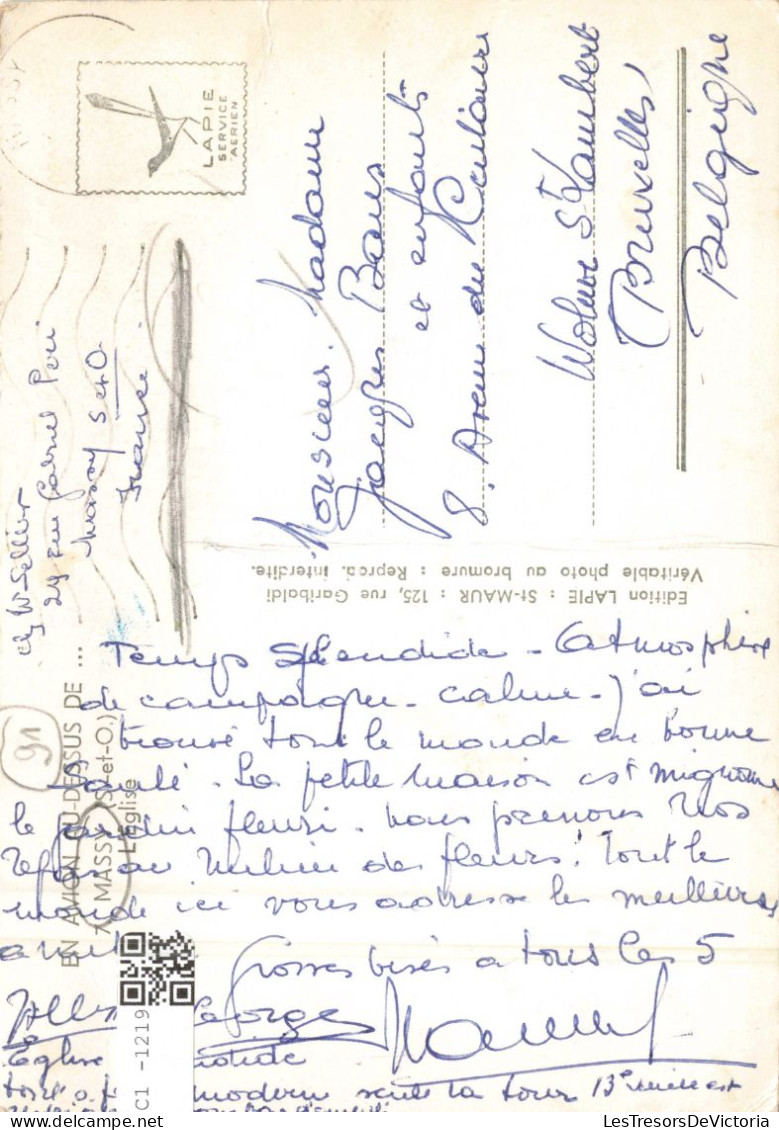 LAPIE
SERVICE
AERIEN
Monsieur. Madame
Jacques Bous
et enfants
8. Avenue du Couloure
Wolme St Lambert
Bruxelles
Belgique
24 rue Gabriel Peri
Massy S et O.
France.
Edition LAPIE : St-MAUR : 125, rue Garibaldi
Véritable photo au bromure : Reprod. interdite.
EN AVION AU-DESSUS DE ...
MASSY (S.-et-O.)
L'église
91
Temps splendide - Atmosphère
de campagne - calme - j'ai
trouvé tout le monde en bonne
santé. La petite maison est mignonne
le jardin fleuri. nous prenons nos
repas au milieu des fleurs! Tout le
monde ici vous adresse les meilleures
Grosses bises a tous les 5
Georges
Eglise
moderne seule la tour 13e
C1 -1219
LesTresorsDeVictoria.com